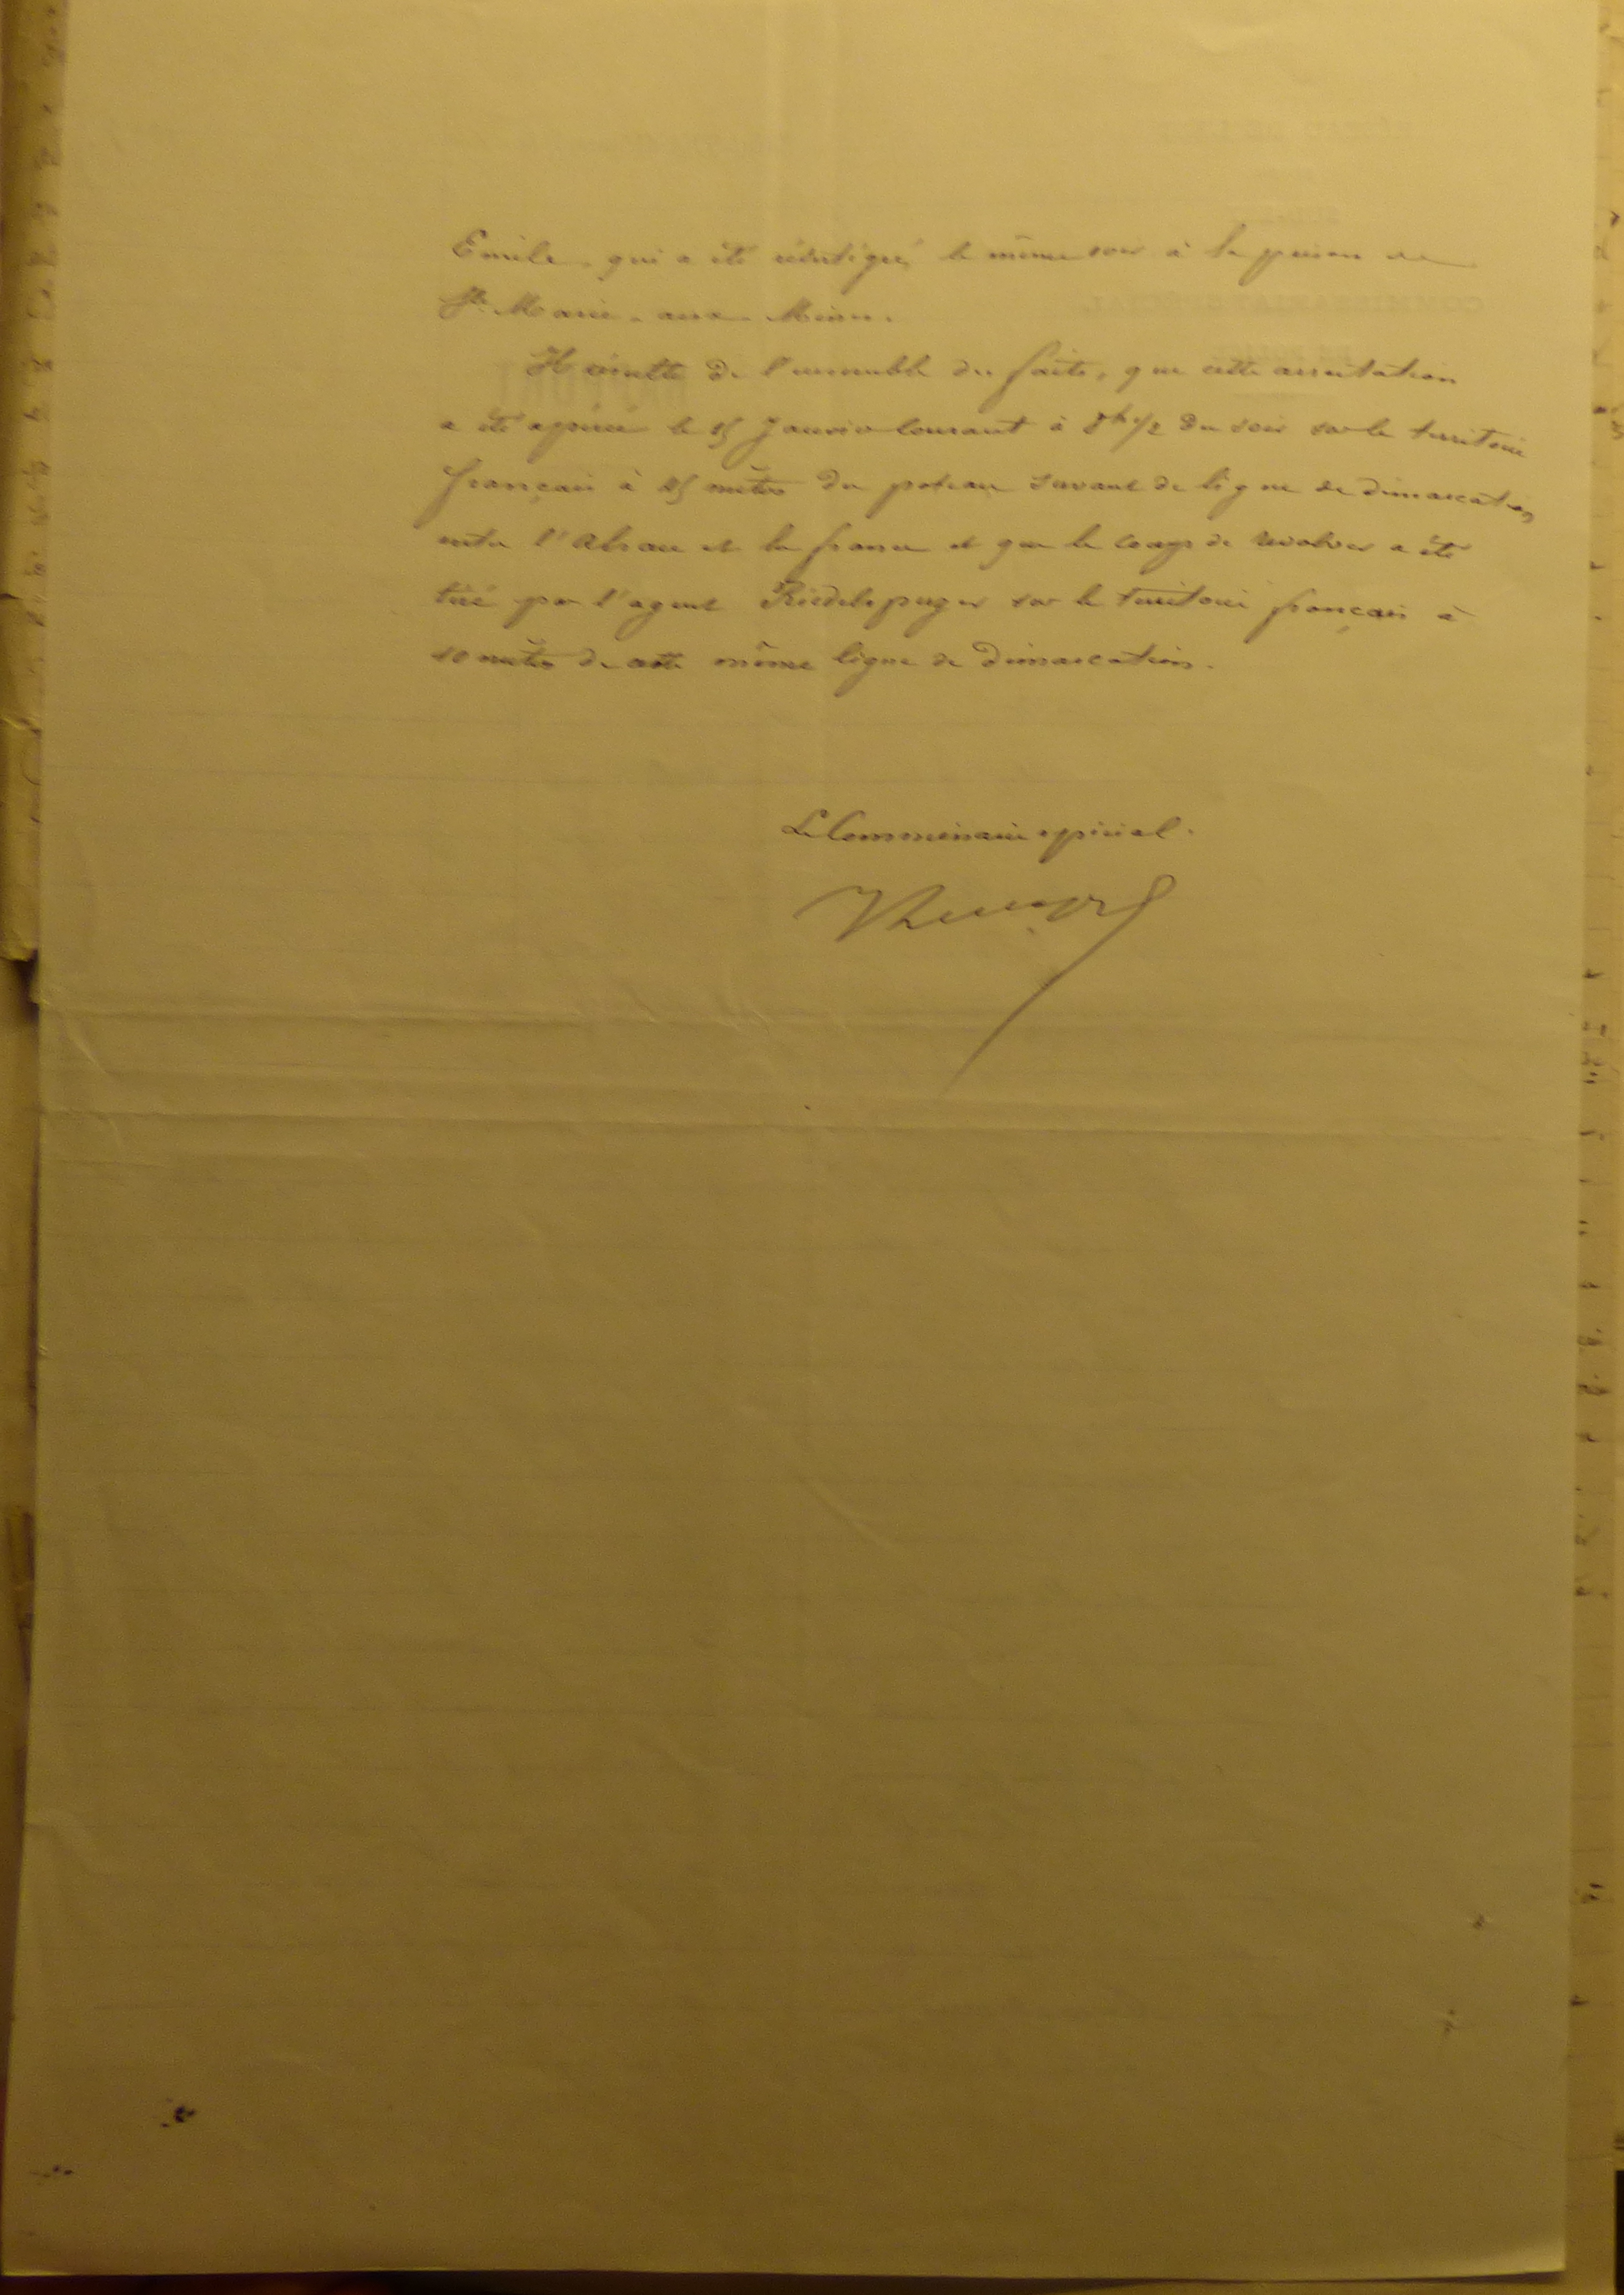 Emile, qui a été réintégré le même soir à la prison de
Ste Marie-aux-Mines.
Il résulte de l'ensemble des faits, que cette arrestation
a été opérée le 15 Janvier courant à 8h 1/2 du soir sur le territoire
français à 25 mètres du poteau servant de ligne de démarcation
entre l'Alsace et la france et que le coup de revolver a été
tiré par l'agent sur le territoire français à
10 mètres de cette même ligne de démarcation.
Le Commissaire spécial.